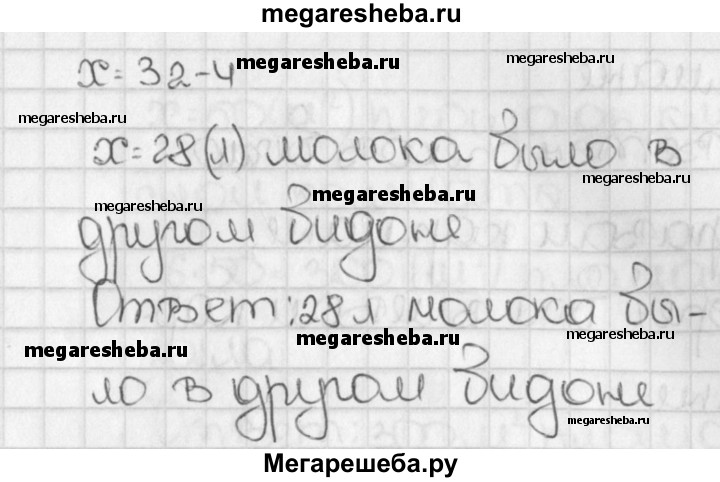 megaresheba.ru
x = 32 - 4
megaresheba.ru
megaresheba.ru
megaresheba.ru
x = 28 (л) молока было в
megaresheba.ru
megaresheba.ru
megaresheba.ru
другом бидоне
megaresheba.ru
Ответ: 28 л молока бы-
megaresheba.ru
megaresheba.ru
ло в другом бидоне
megaresheba.ru
Мегарешеба.ру